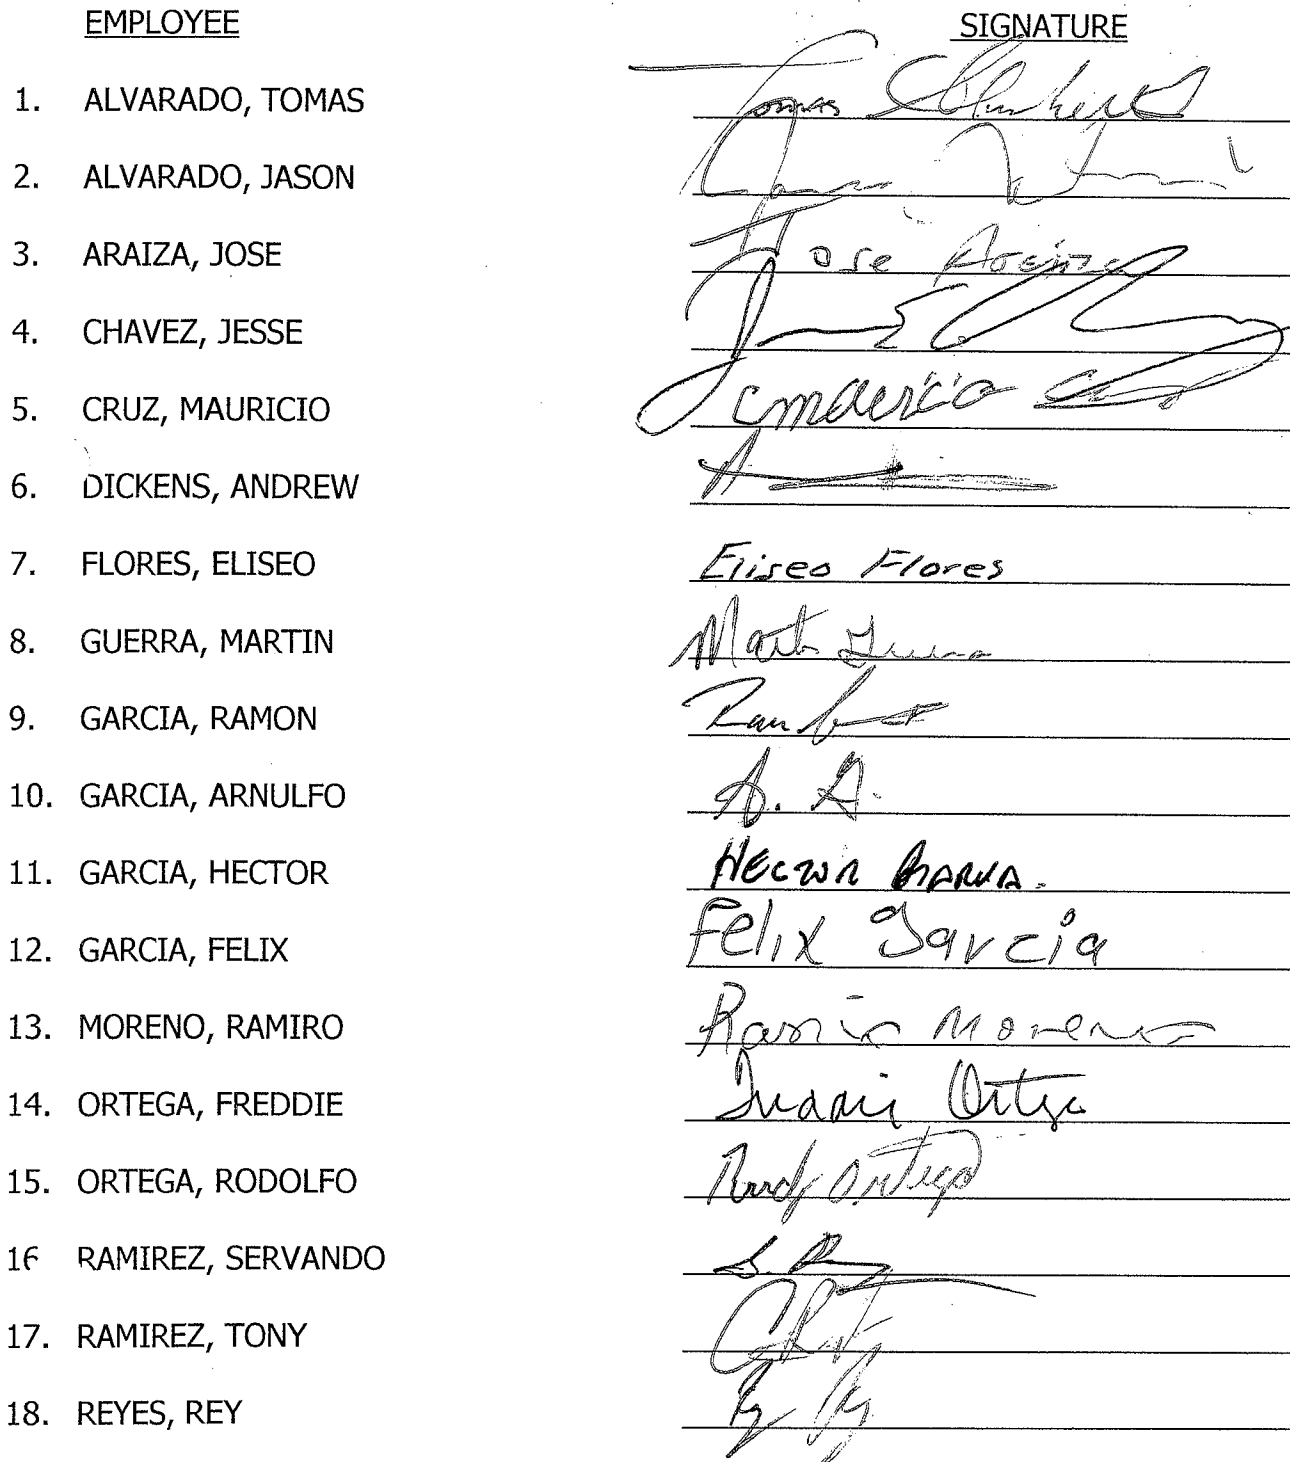 EMPLOYEE SIGNATURE
1. ALVARADO, TOMAS Tomas
2. ALVARADO, JASON
3. ARAIZA, JOSE Jose Araiza
4. CHAVEZ, JESSE
5. CRUZ, MAURICIO
6. DICKENS, ANDREW
7. FLORES, ELISEO Eliseo Flores
8. GUERRA, MARTIN Martin Guerra
9. GARCIA, RAMON
10. GARCIA, ARNULFO A. G.
11. GARCIA, HECTOR HECTOR
12. GARCIA, FELIX Felix Garcia
13. MORENO, RAMIRO Ramiro Moreno
14. ORTEGA, FREDDIE Ortega
15. ORTEGA, RODOLFO Rudy Ortega
16 RAMIREZ, SERVANDO S.
17. RAMIREZ, TONY
18. REYES, REY